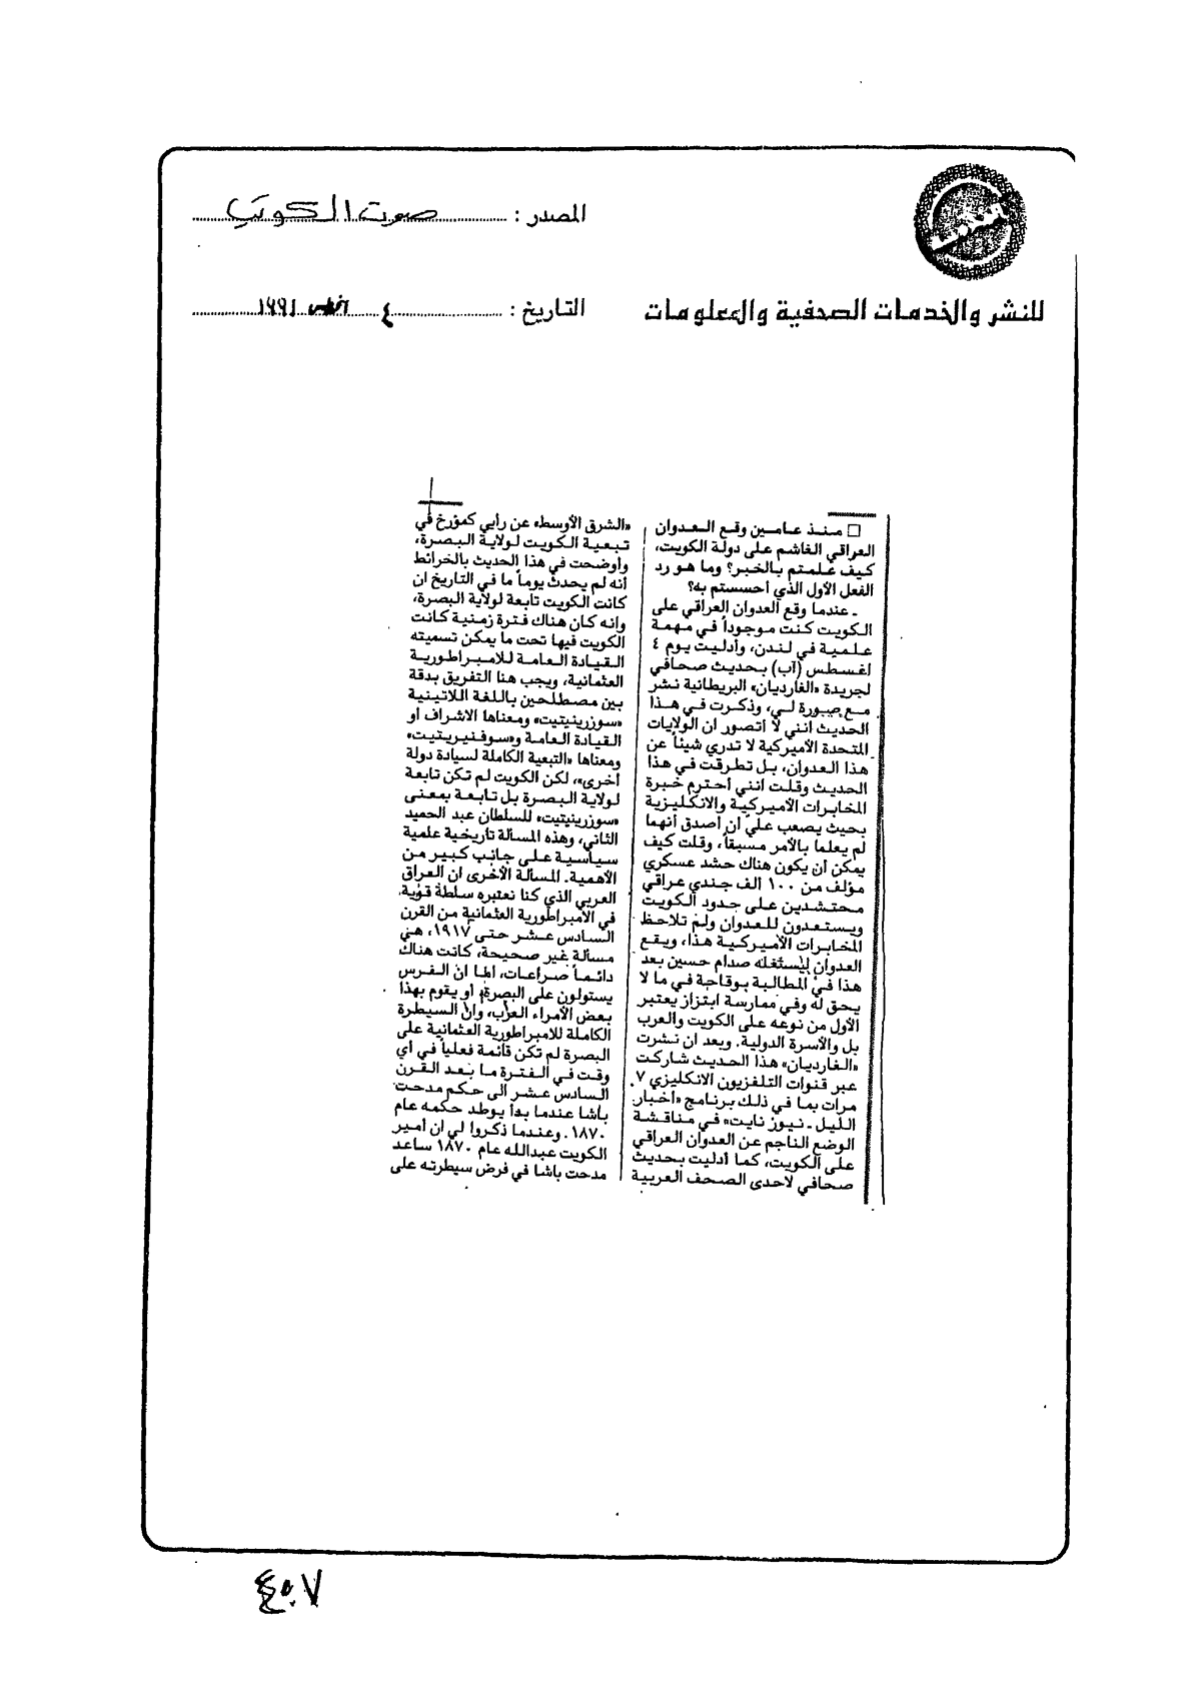 المصدر : صوت الكويت
للنشر والخدمات الصحفية والمعلومات
التاريخ : ٤ اغسطس ١٩٩٢
□ منذ عامين وقع العدوان
العراقي الغاشم على دولة الكويت،
كيف علمتم بالخبر؟ وما هو رد
الفعل الأول الذي أحسستم به؟
ـ عندما وقع العدوان العراقي على
الكويت كنت موجوداً في مهمة
علمية في لندن، وأدليت يوم ٤
اغسطس (آب) بحديث صحافي
لجريدة «الغارديان» البريطانية نشر
مع صورة لي، وذكرت في هذا
الحديث انني لا أتصور ان الولايات
المتحدة الأميركية لا تدري شيئاً عن
هذا العدوان، بل تطرقت في هذا
الحديث وقلت انني أحترم خبرة
المخابرات الأميركية والانكليزية
بحيث يصعب عليّ ان أصدق أنهما
لم يعلما بالأمر مسبقاً، وقلت كيف
يمكن أن يكون هناك حشد عسكري
مؤلف من ١٠٠ الف جندي عراقي
محتشدين على حدود الكويت
ويستعدون للعدوان ولم تلاحظ
المخابرات الأميركية هذا، ويقع
العدوان ليستغله صدام حسين بعد
هذا في المطالبة بوقاحة في ما لا
يحق له وفي ممارسة ابتزاز يعتبر
الأول من نوعه على الكويت والعرب
بل والأسرة الدولية. وبعد ان نشرت
«الغارديان» هذا الحديث شاركت
عبر قنوات التلفزيون الانكليزي ٧
مرات بما في ذلك برنامج «أخبار
الليل ـ نيوز نايت» في مناقشة
الوضع الناجم عن العدوان العراقي
على الكويت، كما أدليت بحديث
صحافي لاحدى الصحف العربية
«الشرق الأوسط» عن رأيي كمؤرخ في
تبعية الكويت لولاية البصرة،
وأوضحت في هذا الحديث بالخرائط
أنه لم يحدث يوماً ما في التاريخ ان
كانت الكويت تابعة لولاية البصرة،
وانه كان هناك فترة زمنية كانت
الكويت فيها تحت ما يمكن تسميته
القيادة العامة للامبراطورية
العثمانية، ويجب هنا التفريق بدقة
بين مصطلحين باللغة اللاتينية
«سوزرينيتيت» ومعناها الاشراف او
القيادة العامة و«سوفنيريتيت»
ومعناها «التبعية الكاملة لسيادة دولة
أخرى»، لكن الكويت لم تكن تابعة
لولاية البصرة بل تابعة بمعنى
«سوزرينيتيت» للسلطان عبد الحميد
الثاني، وهذه المسألة تأريخية علمية
سياسية على جانب كبير من
الأهمية. المسألة الأخرى ان العراق
العربي الذي كنا نعتبره سلطة قوية
في الأمبراطورية العثمانية من القرن
السادس عشر حتى ١٩١٧، هي
مسألة غير صحيحة، كانت هناك
دائماً صراعات، اما ان الفرس
يستولون على البصرة أو يقوم بهذا
بعض الأمراء العرب، وان السيطرة
الكاملة للامبراطورية العثمانية على
البصرة لم تكن قائمة فعلياً في أي
وقت في الفترة ما بعد القرن
السادس عشر الى حكم مدحت
باشا عندما بدأ يوطد حكمه عام
١٨٧٠. وعندما ذكروا لي ان أمير
الكويت عبدالله عام ١٨٧٠ ساعد
مدحت باشا في فرض سيطرته على